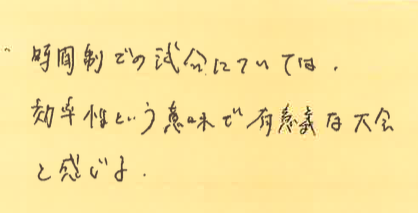 時間制での試合については、
効率性という意味で有意義な大会
と感じよ.